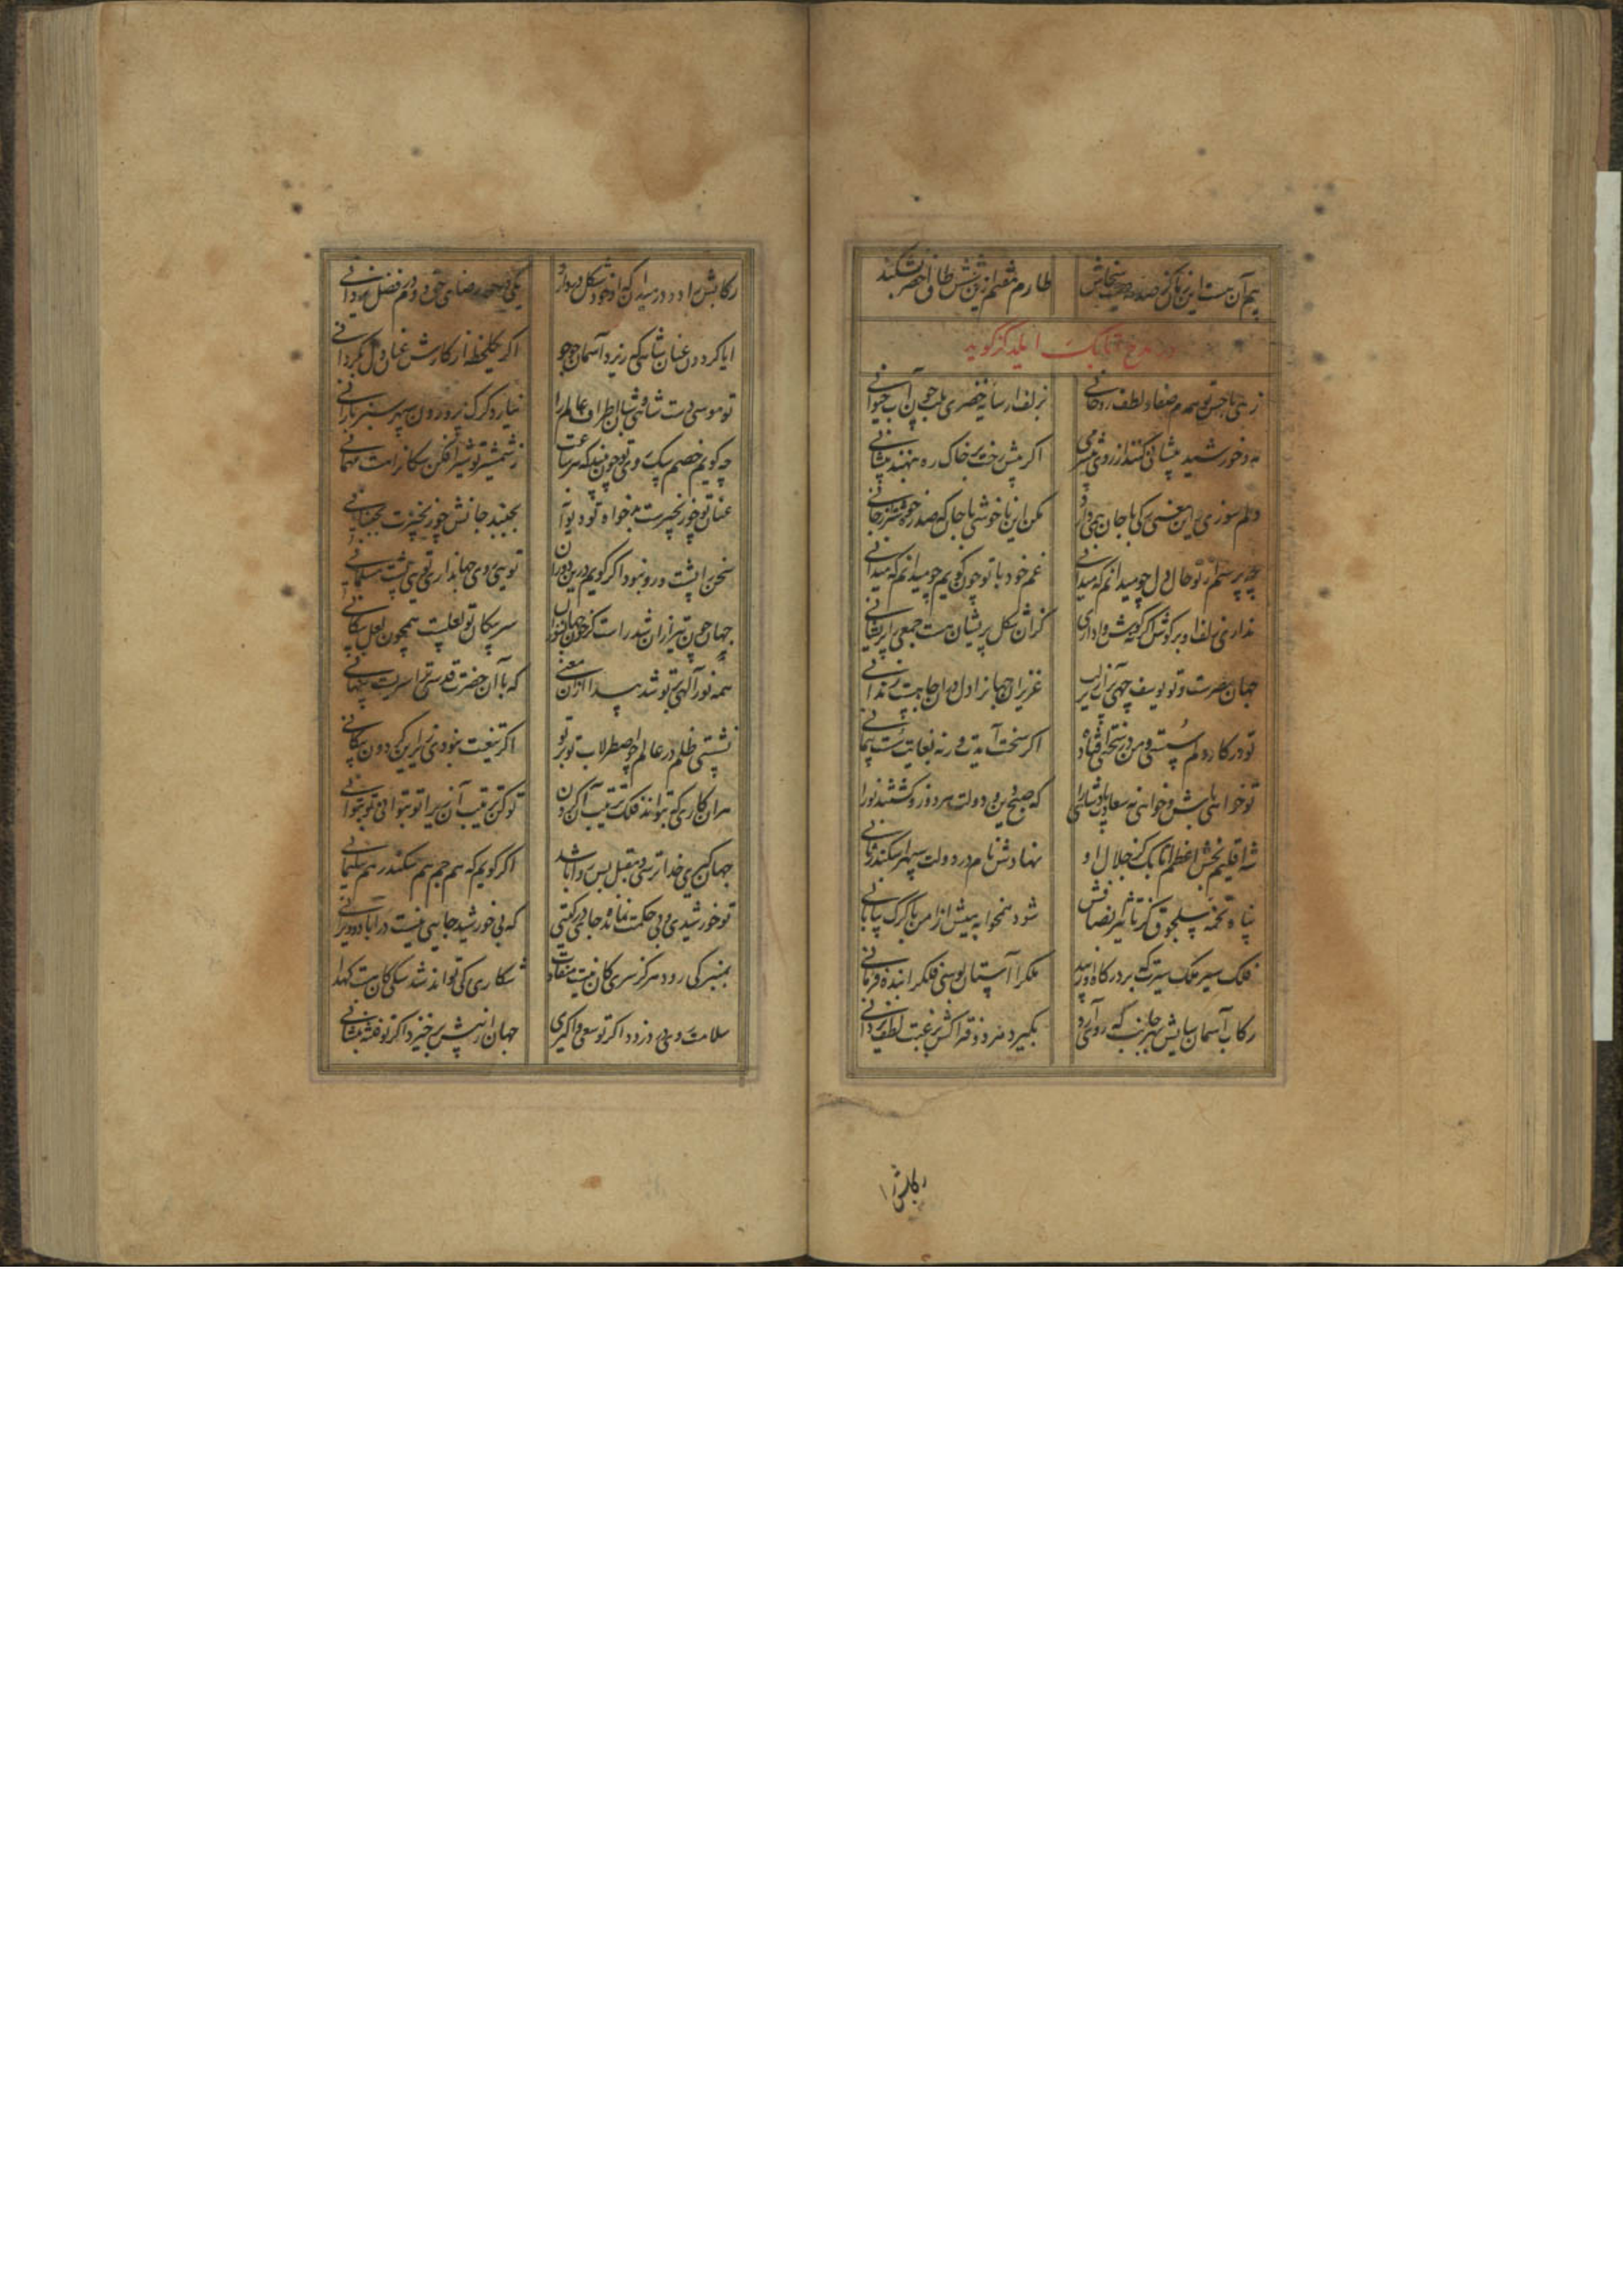 بیم آن هست این زمان کز صدمت
طارم هفتم ازین شش طاق اخضر بشکند
در مدح اتابک ایلدگز گوید
زهی با حسن تو همدم صفا و لطف روحانی
بزلف ار سایه خضری بلب چون آب حیوانی
مه و خورشید پیشانی کنند از روی بی شرمی
اگر پیش رخت بر خاک ره ننهند پیشانی
دلم سوزی برین معنی که با جان همی داری
مکن این ناخوشی با جان که صد ره خوشتر از جانی
چه پرسم از تو حال دل چو میدانم که میدانی
غم خود با تو چون گویم چو میدانم که میدانی
نداری زلف را بر گوش اگر گوشش وا داری
کزان شکل پریشان هست جمعی را پریشانی
جهان مصرست و تو یوسف
عزیزان جهانرا دل در آن چاهست زندانی
تو در کار دلم سستی و من در سختی افتاده
اگر سخت آیدت ور نه بغایت سست پیمانی
تو خواهی باش و خواهی نه سعادت باد شاهی را
که صبح دین و دولت هر دو زو گشتند نورانی
شه اقلیم بخش اعظم اتابک کز جلال او
نهادش نام در دولت سپهر اسکندر ثانی
پناه تخمه سلجوق کز تاثیر انصافش
شود همخوابه میش از امن با گرگ بیابانی
فلک سیر ملک سیرت که بر درگاه او زیبد
ملکرا آستان بوسی فلکرا بنده فرمانی
رکاب آسمان سایش بهر جانب که روی آرد
بگیرد مرد و فتراکش بر غبت لطف یزدانی
رکابش را
رکابش را دو در میدان که از خود شکل دهد او را
یکی محض رضای حق دوم فضل یزدانی
ایا گردون عنان شاهی که ریزد آسمان جوجو
اگر یکلحظه از کارش عنان دل بگردانی
تو موسی دست شاهی و شبان اطراف عالم را
نیارد گرگ نر در دور این سپهر سبز بارانی
چه گویم خصم سگ روی تو چون بیند که هر ساعت
ز شمشیر تو شیر افکن سگانراهست مهمانی
عنان تو خور نخچیرست بدخواه تو و دیو آن
بجنبد جانش چون نخچیرت بجنبانی
سخن را پشت و رو نبود اگر گویم درین دوران
تویی روی جهانداری تویی پشت مسلمانی
جهان چون تیر از آن شد راست کز خون جهانخواران
سر پیکان تو لعلیست همچون لعل پیکانی
همه نور آلهی بر تو شد پیدا از آن معنی
که با آن حضرت قدسی ترا سریست پنهانی
نشستی ظلم در عالم چو اصطرلاب تو بر تو
اگر تیغت نبودی زیر این گردون پیکانی
هر آن کاری که نتواند فلک ترتیب آن کردن
تو کن ترتیب آن زیرا تو بتوانی تو بتوانی
جهانگیری خدا ترسی و مقبل بس روا باشد
اگر گویم که هم جم هم سکندر هم سلیمانی
تو خورشیدی و بی حکمت نمانده جای در گیتی
که بی خورشید جایی نیست در آباد و ویرانی
بمنبر کی رود هرگز سری کان نیست منقادت
شکاری کی تواند شد سگی کان هست کهدانی
سلامت روی در دزدد اگر تو سعی واگیری
جهان از پیش برخیزد اگر تو فتنه ننشانی